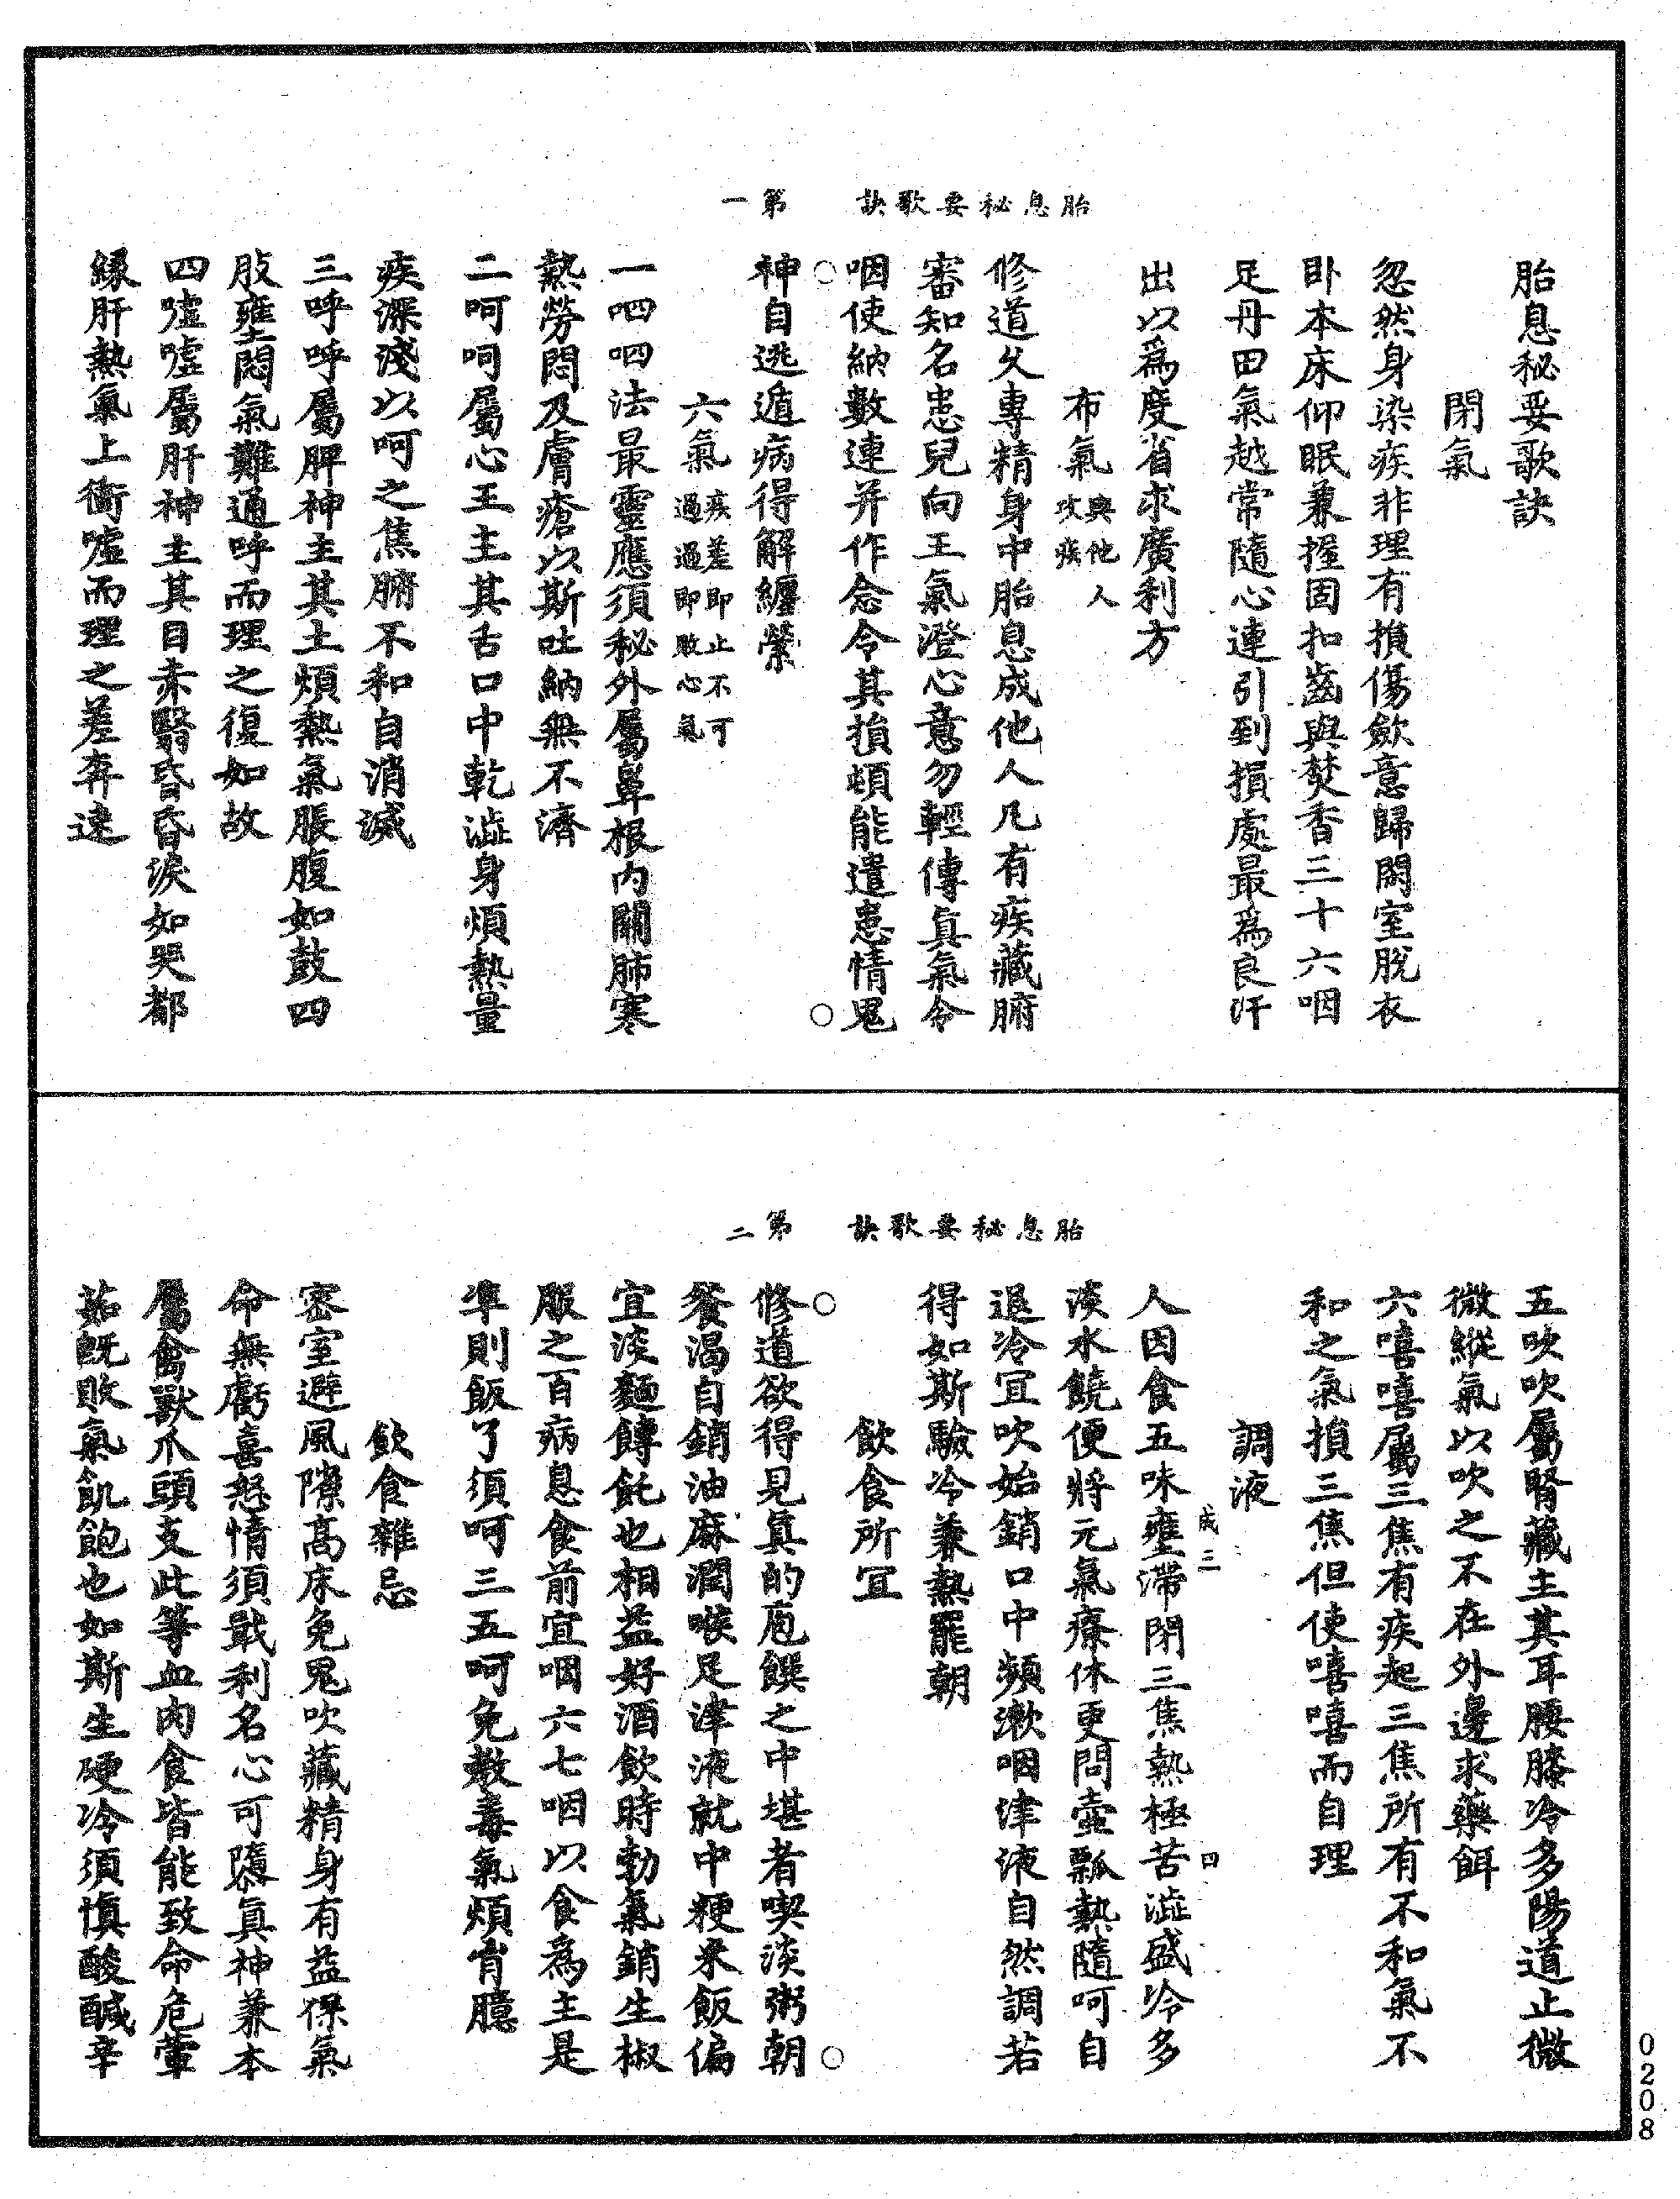 胎息秘要歌訣　第一
胎息秘要歌訣
閉氣
忽然身染疾非理有損傷斂意歸閑室脫衣
卧本床仰眠兼握固扣齒與焚香三十六咽
足丹田氣越常隨心連引到損處最爲良汗
出以爲度省求廣利方
布氣 與他人攻疾
修道久專精身中胎息成他人凡有疾藏腑
審知名患兒向王氣澄心意勿輕傳真氣令
咽使納數連并作念令其損頓能遣患情鬼
神自逃遁病得解纏縈
六氣 疾差即止不可過過即敗心氣
一呬呬法最靈應須秘外屬鼻根內關肺寒
熱勞悶及膚瘡以斯吐納無不濟
二呵呵屬心王主其舌口中乾澁身煩熱量
疾深淺以呵之焦腑不和自消滅
三呼呼屬脾神主其土煩熱氣脹腹如鼓四
肢壅悶氣難通呼而理之復如故
四噓噓屬肝神主其目赤翳昏昏淚如哭都
緣肝熱氣上衝噓而理之差奔速
胎息秘要歌訣　第二
五吹吹屬腎藏主其耳腰膝冷多陽道止微
微縱氣以吹之不在外邊求藥餌
六嘻嘻屬三焦有疾起三焦所有不和氣不
和之氣損三焦但使嘻嘻而自理
調液
成三　四
人因食五味壅滯閉三焦熱極苦澁盛冷多
淡水饒便將元氣療休更問壺瓢熱隨呵自
退冷冝吹始銷口中頻漱咽津液自然調若
得如斯驗冷兼熱罷朝
飲食所冝
修道欲得見真的庖饌之中堪者喫淡粥朝
餐渴自銷油麻潤喉足津液就中粳米飯偏
宜淡麵餺飥也相益好酒飲時勃氣銷生椒
服之百病息食前宜咽六七咽以食為主是
準則飯了須呵三五呵免教毒氣煩胷臆
飲食雜忌
密室避風隙高床免鬼吹藏精身有益保氣
命無虧喜怒情須戢利名心可隳真神兼本
屬禽獸爪頭支此等血肉食皆能致命危葷
茹既敗氣飢飽也如斯生硬冷須慎酸醎辛
0208